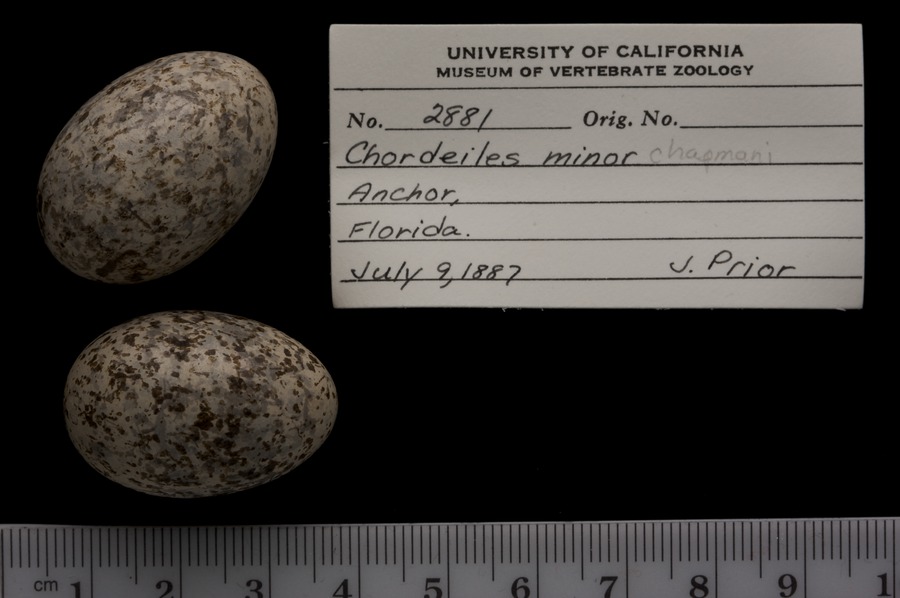 UNIVERSITY OF CALIFORNIA
MUSEUM OF VERTEBRATE ZOOLOGY
No. 2881 Orig. No.
Chordeiles minor chapmani
Anchor,
Florida.
July 9, 1887 J. Prior
cm 1 2 3 4 5 6 7 8 9 1